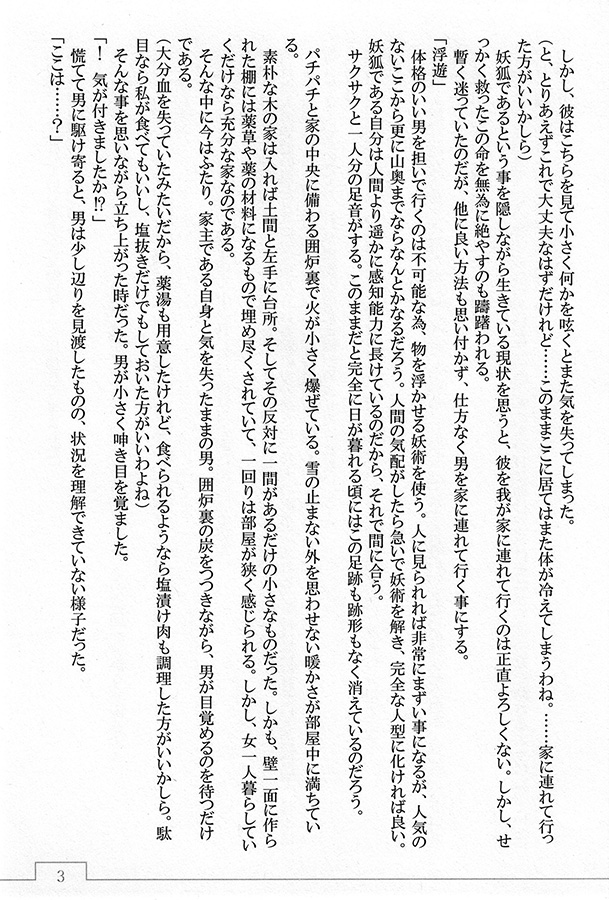 しかし、彼はこちらを見て小さく何かを呟くとまた気を失ってしまった。
（と、とりあえずこれで大丈夫なはずだけれど……このままここに居てはまた体が冷えてしまうわね。……家に連れて行っ
た方がいいかしら）
　妖狐であるという事を隠しながら生きている現状を思うと、彼を我が家に連れて行くのは正直よろしくない。しかし、せ
っかく救ったこの命を無為に絶やすのも躊躇われる。
　暫く迷っていたのだが、他に良い方法も思い付かず、仕方なく男を家に連れて行く事にする。
「浮遊」
　体格のいい男を担いで行くのは不可能な為、物を浮かせる妖術を使う。人に見られれば非常にまずい事になるが、人気の
ないここから更に山奥までならなんとかなるだろう。人間の気配がしたら急いで妖術を解き、完全な人型に化ければ良い。
妖狐である自分は人間より遥かに感知能力に長けているのだから、それで間に合う。
　サクサクと一人分の足音がする。このままだと完全に日が暮れる頃にはこの足跡も跡形もなく消えているのだろう。
　パチパチと家の中央に備わる囲炉裏で火が小さく爆ぜている。雪の止まない外を思わせない暖かさが部屋中に満ちてい
る。
　素朴な木の家は入れば土間と左手に台所。そしてその反対に一間があるだけの小さなものだった。しかも、壁一面に作ら
れた棚には薬草や薬の材料になるもので埋め尽くされていて、一回りは部屋が狭く感じられる。しかし、女一人暮らしてい
くだけなら充分な家なのである。
　そんな中に今はふたり。家主である自身と気を失ったままの男。囲炉裏の炭をつつきながら、男が目覚めるのを待つだけ
である。
（大分血を失っていたみたいだから、薬湯も用意したけれど、食べられるようなら塩漬け肉も調理した方がいいかしら。駄
目なら私が食べてもいいし、塩抜きだけでもしておいた方がいいわよね）
　そんな事を思いながら立ち上がった時だった。男が小さく呻き目を覚ました。
「！　気が付きましたか!?」
　慌てて男に駆け寄ると、男は少し辺りを見渡したものの、状況を理解できていない様子だった。
「ここは……？」
3